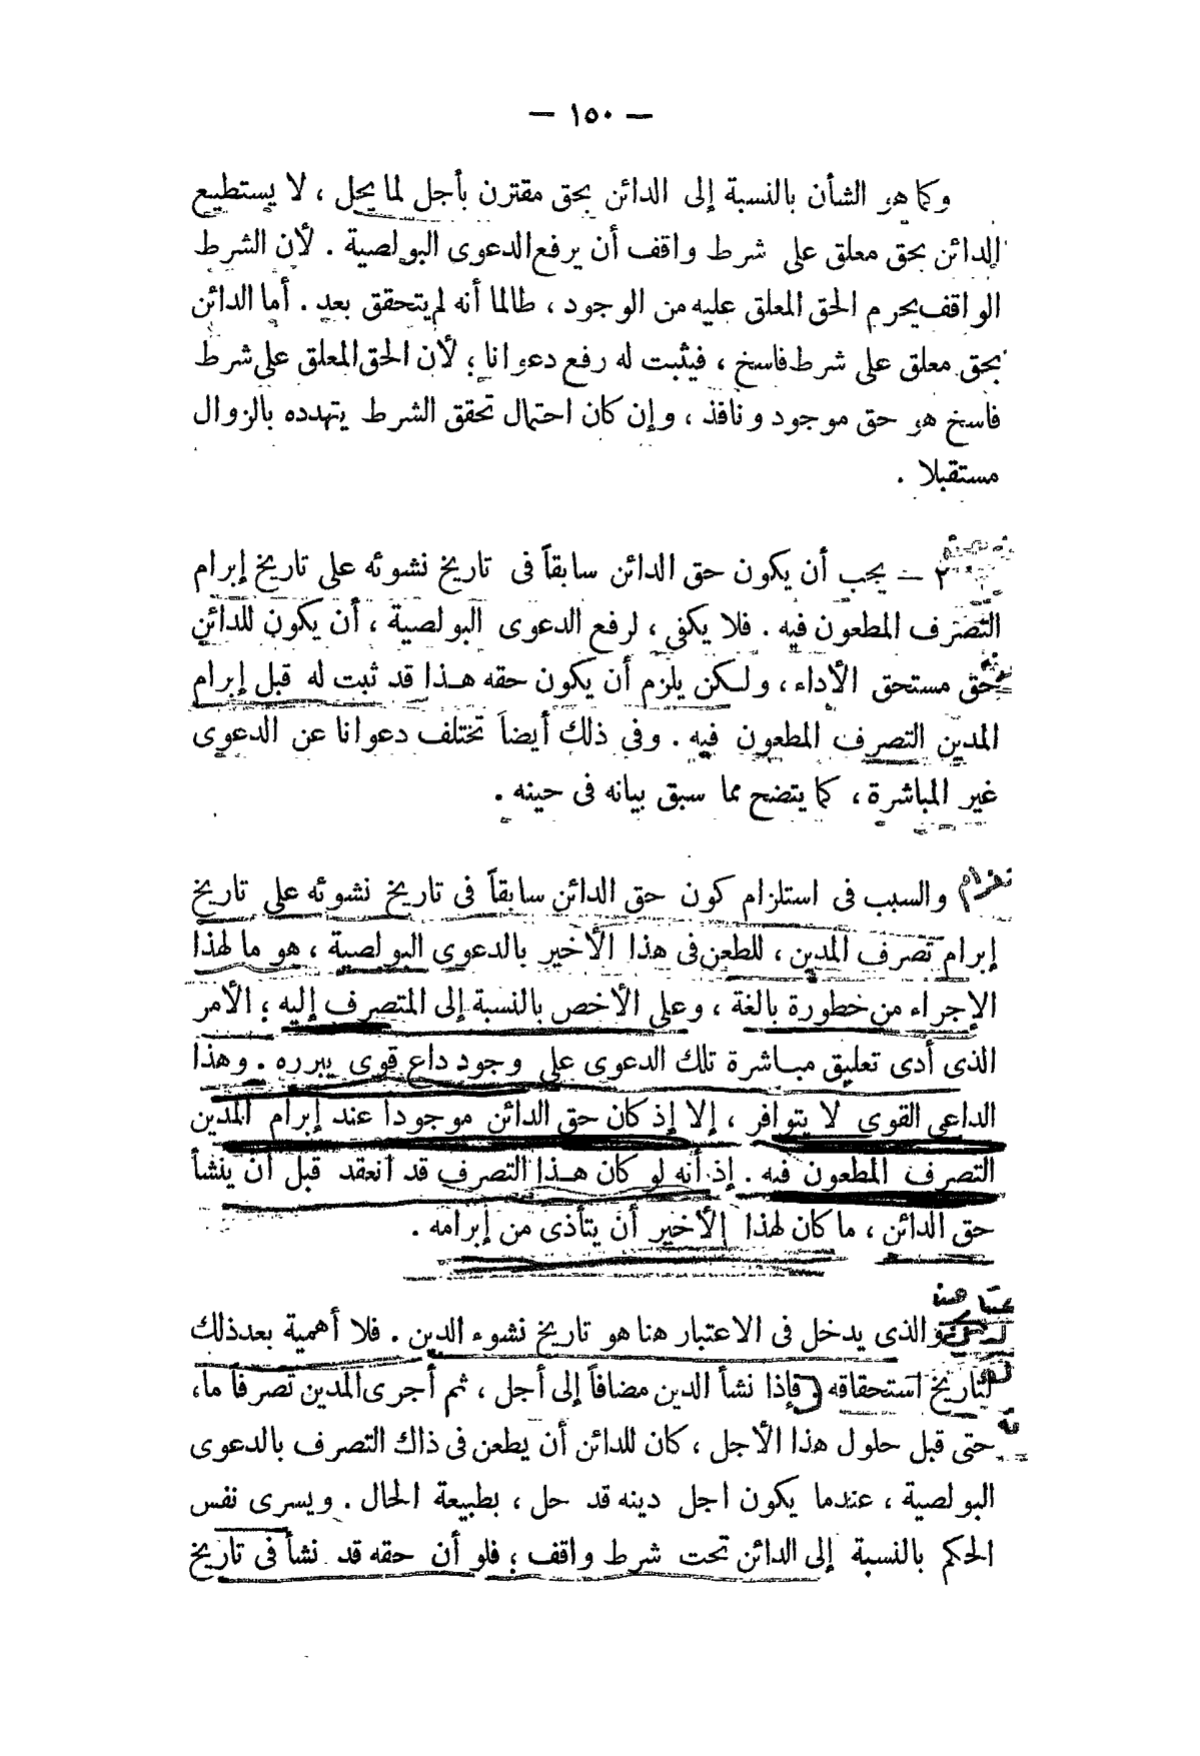 — ١٥٠ —
وكما هو الشأن بالنسبة إلى الدائن بحق مقترن بأجل لما يحل ، لا يستطيع
الدائن بحق معلق على شرط واقف أن يرفع الدعوى البولصية . لأن الشرط
الواقف يحرم الحق المعلق عليه من الوجود ، طالما أنه لم يتحقق بعد . أما الدائن
بحق معلق على شرط فاسخ ، فيثبت له رفع دعوانا ؛ لأن الحق المعلق على شرط
فاسخ هو حق موجود ونافذ ، وإن كان احتمال تحقق الشرط يتهدده بالزوال
مستقبلا .
٢ — يجب أن يكون حق الدائن سابقاً فى تاريخ نشوئه على تاريخ إبرام
التصرف المطعون فيه . فلا يكفى ، لرفع الدعوى البولصية ، أن يكون للدائن
حق مستحق الأداء ، ولكن يلزم أن يكون حقه هذا قد ثبت له قبل إبرام
المدين التصرف المطعون فيه . وفى ذلك أيضاً تختلف دعوانا عن الدعوى
غير المباشرة ، كما يتضح مما سبق بيانه فى حينه .
والسبب فى استلزام كون حق الدائن سابقاً فى تاريخ نشوئه على تاريخ
إبرام تصرف المدين ، للطعن فى هذا الأخير بالدعوى البولصية ، هو ما لهذا
الإجراء من خطورة بالغة ، وعلى الأخص بالنسبة إلى المتصرف إليه ؛ الأمر
الذى أدى تعليق مباشرة تلك الدعوى على وجود داع قوى يبرره . وهذا
الداعى القوى لا يتوافر ، إلا إذ كان حق الدائن موجوداً عند إبرام المدين
التصرف المطعون فيه . إذ أنه لو كان هذا التصرف قد انعقد قبل أن ينشأ
حق الدائن ، ما كان لهذا الأخير أن يتأذى من إبرامه .
والذى يدخل فى الاعتبار هنا هو تاريخ نشوء الدين . فلا أهمية بعد ذلك
لتاريخ استحقاقه . فإذا نشأ الدين مضافاً إلى أجل ، ثم أجرى المدين تصرفاً ما ،
حتى قبل حلول هذا الأجل ، كان للدائن أن يطعن فى ذاك التصرف بالدعوى
البولصية ، عندما يكون اجل دينه قد حل ، بطبيعة الحال . ويسرى نفس
الحكم بالنسبة إلى الدائن تحت شرط واقف ؛ فلو أن حقه قد نشأ فى تاريخ